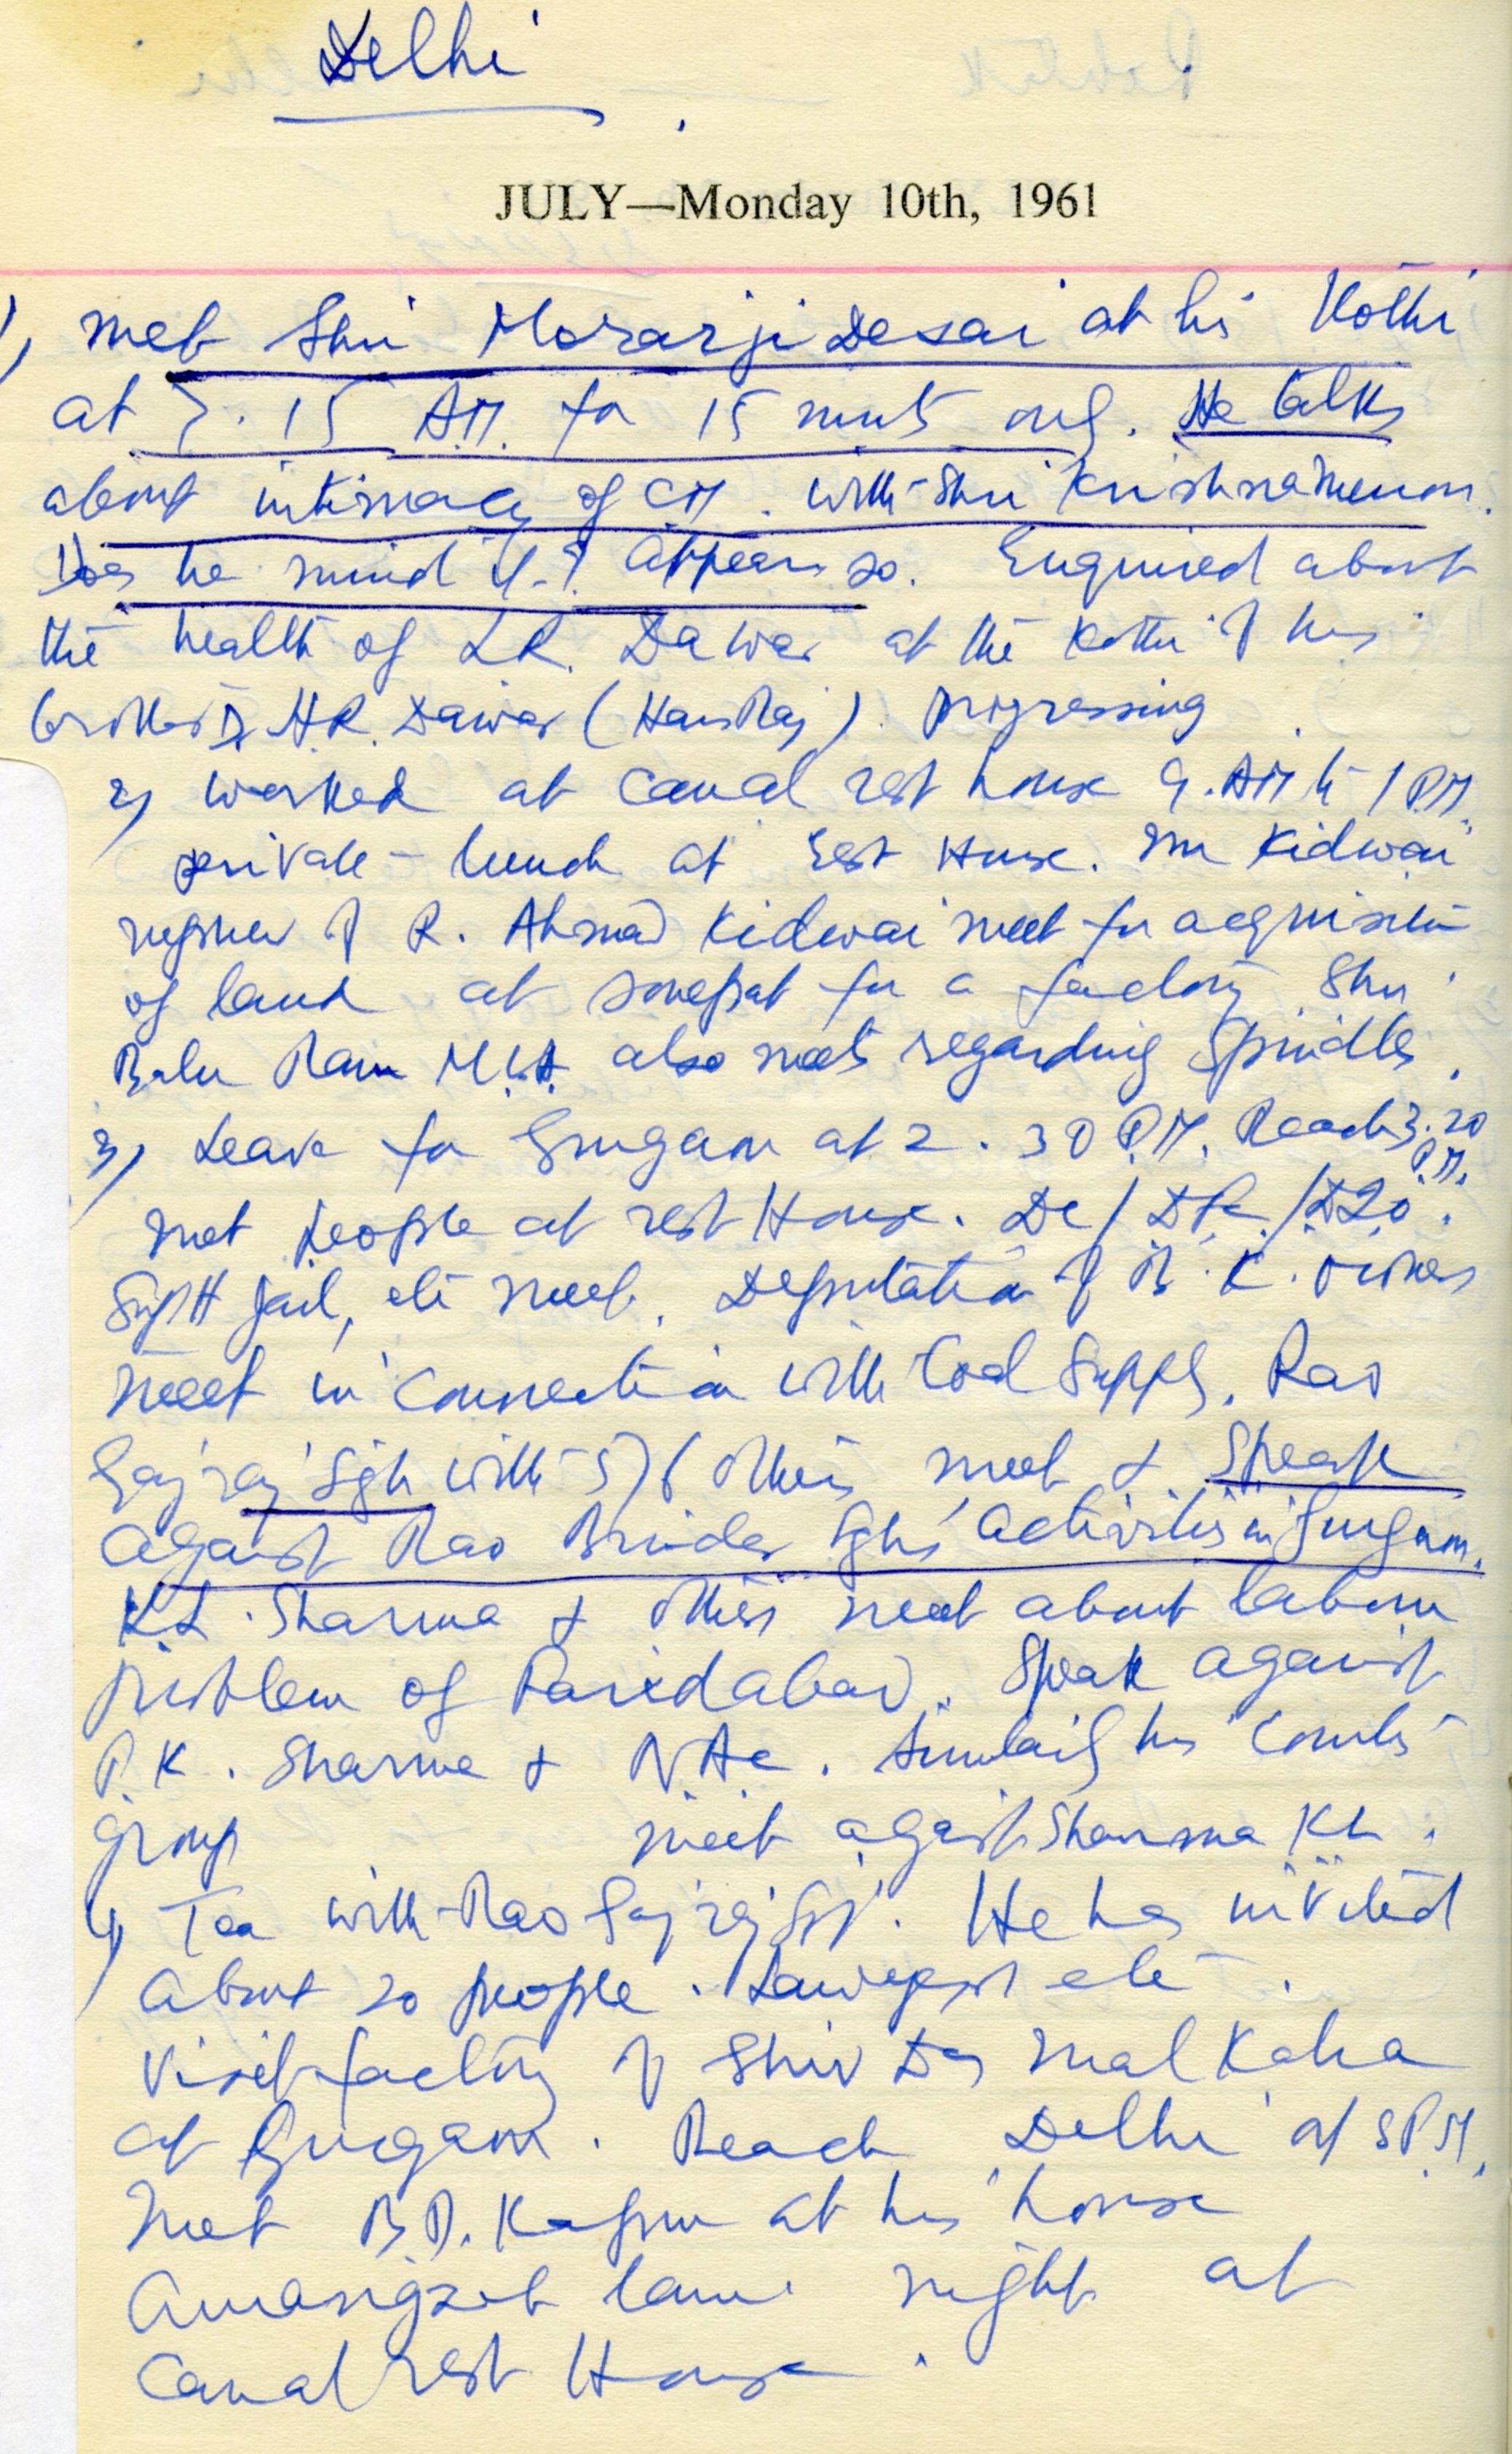 Delhi
JULY—Monday 10th, 1961
1) Met Shri Morarji Desai at his Kothi
at 7.15 AM. for 15 mnts only. He talks
about intimacy of CM. with Shri Krishna Menon.
Does he mind it? Appears so. Enquired about
the health of L.R. Dawar at the Kothi of his
brother H.R. Dawar (Hans Raj). progressing
2) worked at Canal rest house 9.AM to 1 PM.
private lunch at Rest House. Mr Kidwai
nephew of R. Ahmad Kidwai meet for acquisition
of land at Sonepat for a factory Shri
Balu Ram M.L.A. also meets regarding Spindles.
3) Leave for Gurgaon at 2.30 P.M. Reach 3.20
P.M.
Met people at rest House. DC/ /
Supdt Jail, etc meet. Deputation of B.K. owners
meet in connection with Coal Supply. Rao
Gajraj Sgh with 5/6 others meet & Speak
against Rao Birinder Sghs' activities in Gurgaon.
K.L. Sharma & others meet about labour
problem of Faridabad. Speak against
P.K. Sharma & . Similarly his Counter
group meet against Sharma KL.
4) Tea with Rao Gajraj Sgh. He has invited
about 20 people. etc.
Visit factory of Shiv Das Mal
at Gurgaon. Reach Delhi at 8 P.M.
Met B.D. Kapur at his house
Aurangzeb lane. night at
Canal rest House.